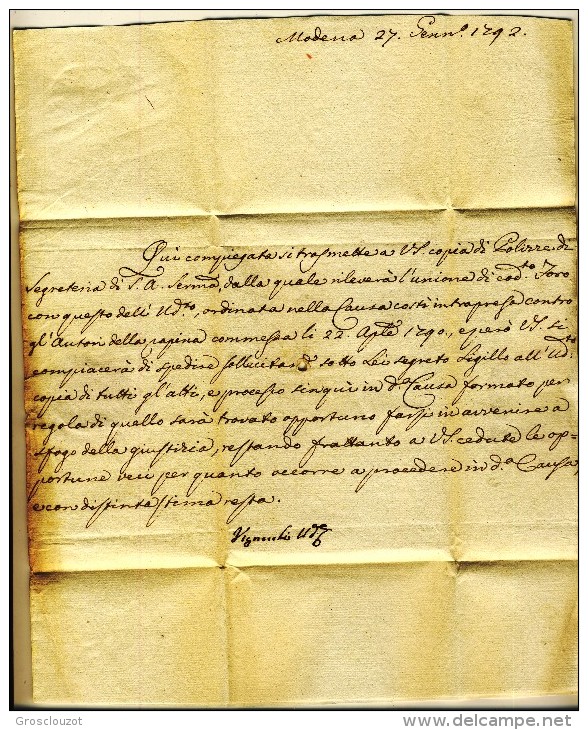 Modena 27. Genn.º 1792.
Qui compiegata si trasmette a VS. copia di Polizza di
Segreteria di S. A. Serma, dalla quale rileverà l'unione di cod.to Foro
con questo dell' Ud.to, ordinata nella Causa costì intrapresa contro
gl'Autori della rapina commessa li 22. Aple 1790., e però VS. si
compiacerà di spedire sollecitam.e sotto Lei segreto Sigillo all' Ud.to
copia di tutti gl'atti, e processo sin qui in d.a Causa formato per
regola di quello sarà trovato opportuno farsi in avvenire a
sfogo della giustizia, restando frattanto a VS. cedute le op-
portune veci per quanto occorre a procedere in d.a Causa,
e con distinta stima resto.
Grosclouzot
www.delcampe.net